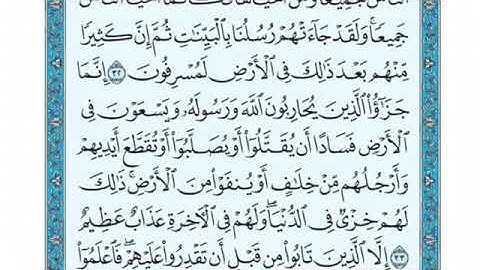 النَّاسَ جَمِيعًا وَمَنْ أَحْيَاهَا فَكَأَنَّمَا أَحْيَا النَّاسَ
جَمِيعًا ۚ وَلَقَدْ جَآءَتْهُمْ رُسُلُنَا بِٱلْبَيِّنَٰتِ ثُمَّ إِنَّ كَثِيرًا
مِّنْهُم بَعْدَ ذَٰلِكَ فِي ٱلْأَرْضِ لَمُسْرِفُونَ ٣٢ إِنَّمَا
جَزَٰٓؤُا۟ ٱلَّذِينَ يُحَارِبُونَ ٱللَّهَ وَرَسُولَهُۥ وَيَسْعَوْنَ فِي
ٱلْأَرْضِ فَسَادًا أَن يُقَتَّلُوٓا۟ أَوْ يُصَلَّبُوٓا۟ أَوْ تُقَطَّعَ أَيْدِيهِمْ
وَأَرْجُلُهُم مِّنْ خِلَٰفٍ أَوْ يُنفَوْا۟ مِنَ ٱلْأَرْضِ ۚ ذَٰلِكَ
لَهُمْ خِزْىٌ فِي ٱلدُّنْيَا ۖ وَلَهُمْ فِي ٱلْأَخِرَةِ عَذَابٌ عَظِيمٌ
٣٣ إِلَّا ٱلَّذِينَ تَابُوا۟ مِن قَبْلِ أَن تَقْدِرُوا۟ عَلَيْهِمْ ۖ فَٱعْلَمُوٓا۟